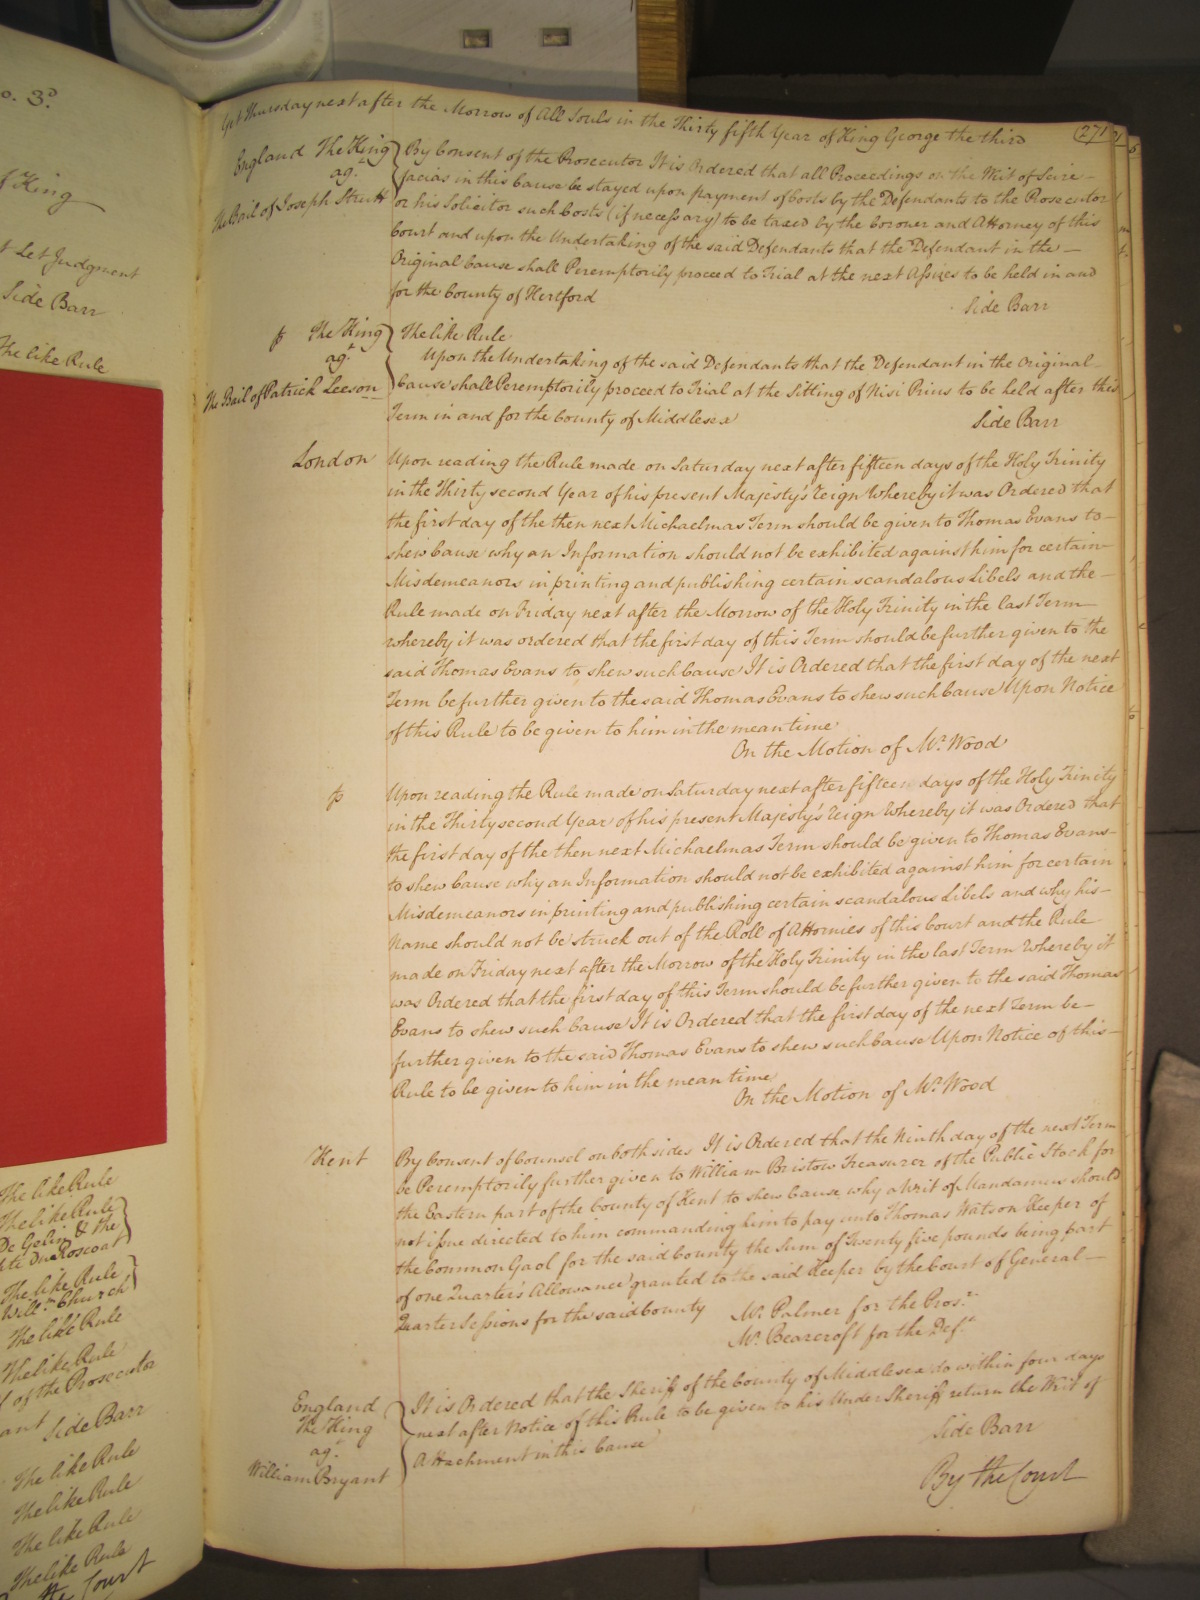 o. 3.d
f King
t Let Judgment
Side Barr
The like Rule
The like Rule
The like Rule
De Gelin & the
Roscoat
The like Rule
Willm Church
The like Rule
The like Rule
of the Prosecutor
ant Side Barr
The like Rule
The like Rule
The like Rule
The like Rule
the Court
Yet Thursday next after the Morrow of All Souls in the Thirty fifth Year of King George the third
(271)
England The King
agt
The Bail of Joseph Strutt
By Consent of the Prosecutor It is Ordered that all Proceedings on the Writ of Scire
facias in this Cause be stayed upon payment of Costs by the Defendants to the Prosecutor
or his Solicitor such Costs (if necessary) to be taxed by the Coroner and Attorney of this
Court and upon the Undertaking of the said Defendants that the Defendant in the
Original Cause shall Peremptorily proceed to Trial at the next Assizes to be held in and
for the County of Hertford
Side Barr
The King
agt
The Bail of Patrick Leeson
The like Rule
Upon the Undertaking of the said Defendants that the Defendant in the Original
Cause shall Peremptorily proceed to Trial at the Sitting of Nisi Prius to be held after this
Term in and for the County of Middlesex
Side Barr
London
Upon reading the Rule made on Saturday next after fifteen days of the Holy Trinity
in the Thirty second Year of his present Majesty's Reign Whereby it was Ordered that
the first day of the then next Michaelmas Term should be given to Thomas Evans to
shew Cause why an Information should not be exhibited against him for certain
Misdemeanors in printing and publishing certain scandalous Libels and the
Rule made on Friday next after the Morrow of the Holy Trinity in the last Term
whereby it was ordered that the first day of this Term should be further given to the
said Thomas Evans to shew such Cause It is Ordered that the first day of the next
Term be further given to the said Thomas Evans to shew such Cause Upon Notice
of this Rule to be given to him in the mean time
On the Motion of Mr. Wood
Upon reading the Rule made on Saturday next after fifteen days of the Holy Trinity
in the Thirty second Year of his present Majesty's Reign Whereby it was Ordered that
the first day of the then next Michaelmas Term should be given to Thomas Evans
to shew Cause why an Information should not be exhibited against him for certain
Misdemeanors in printing and publishing certain scandalous Libels and why his
Name should not be struck out of the Roll of Attornies of this Court and the Rule
made on Friday next after the Morrow of the Holy Trinity in the last Term Whereby it
was Ordered that the first day of this Term should be further given to the said Thomas
Evans to shew such Cause It is Ordered that the first day of the next Term be
further given to the said Thomas Evans to shew such Cause Upon Notice of this
Rule to be given to him in the mean time
On the Motion of Mr. Wood
Kent
By Consent of Counsel on both sides It is Ordered that the Ninth day of the next Term
be Peremptorily further given to William Bristow Treasurer of the Public Stock for
the Eastern part of the County of Kent to shew Cause why a Writ of Mandamus should
not issue directed to him commanding him to pay unto Thomas Watson Keeper of
the Common Gaol for the said County the Sum of Twenty five pounds being part
of one Quarter's Allowance granted to the said Keeper by the Court of General
Quarter Sessions for the said County
Mr. Palmer for the Prosr
Mr. Bearcroft for the Deft
England
The King
agt
William Bryant
It is Ordered that the Sheriff of the County of Middlesex do within four days
next after Notice of this Rule to be given to his Under Sheriff return the Writ of
Attachment in this Cause
Side Barr
By the Court